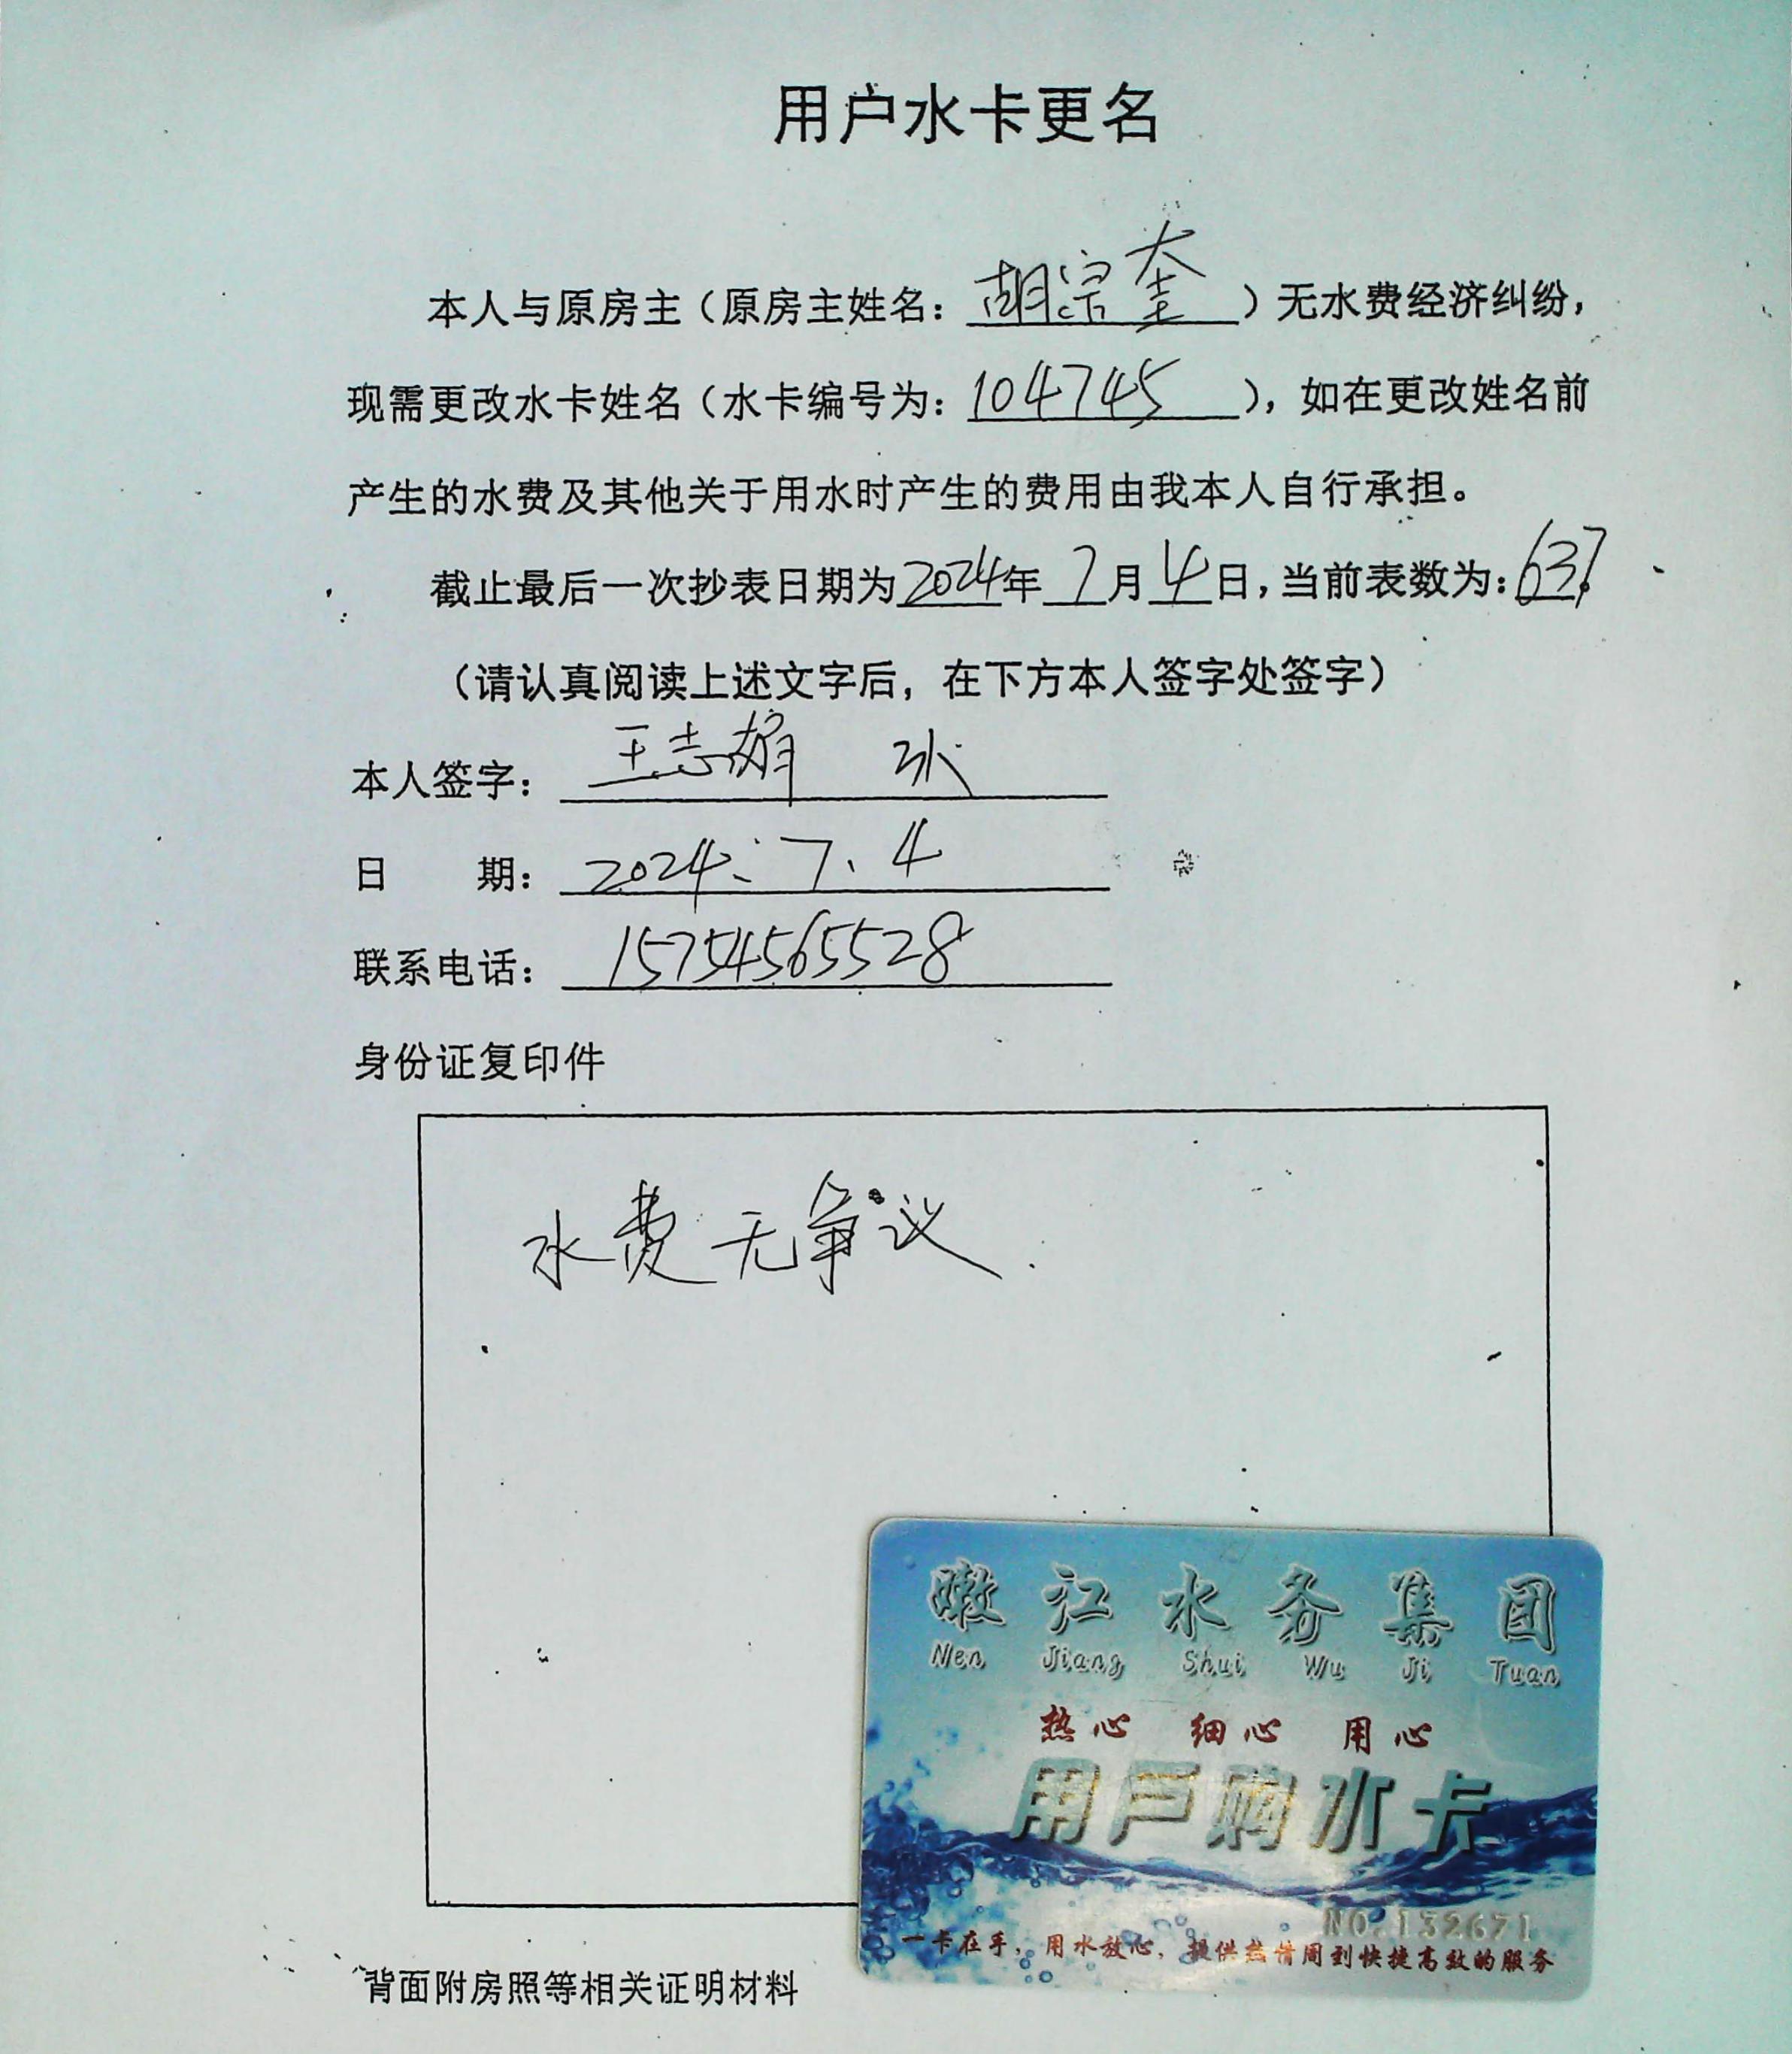 用户水卡更名
本人与原房主（原房主姓名：胡宗奎）无水费经济纠纷，
现需更改水卡姓名（水卡编号为：104745），如在更改姓名前
产生的水费及其他关于用水时产生的费用由我本人自行承担。
截止最后一次抄表日期为2024年7月4日，当前表数为：637
（请认真阅读上述文字后，在下方本人签字处签字）
本人签字：王志
日 期：2024.7.4
联系电话：15754565528
身份证复印件
水费无争议.
嫩江水务集团
Nen Jiang Shui Wu Ji Tuan
热心 细心 用心
用户购水卡
NO.132671
一卡在手，用水放心，提供热情周到快捷高效的服务
背面附房照等相关证明材料